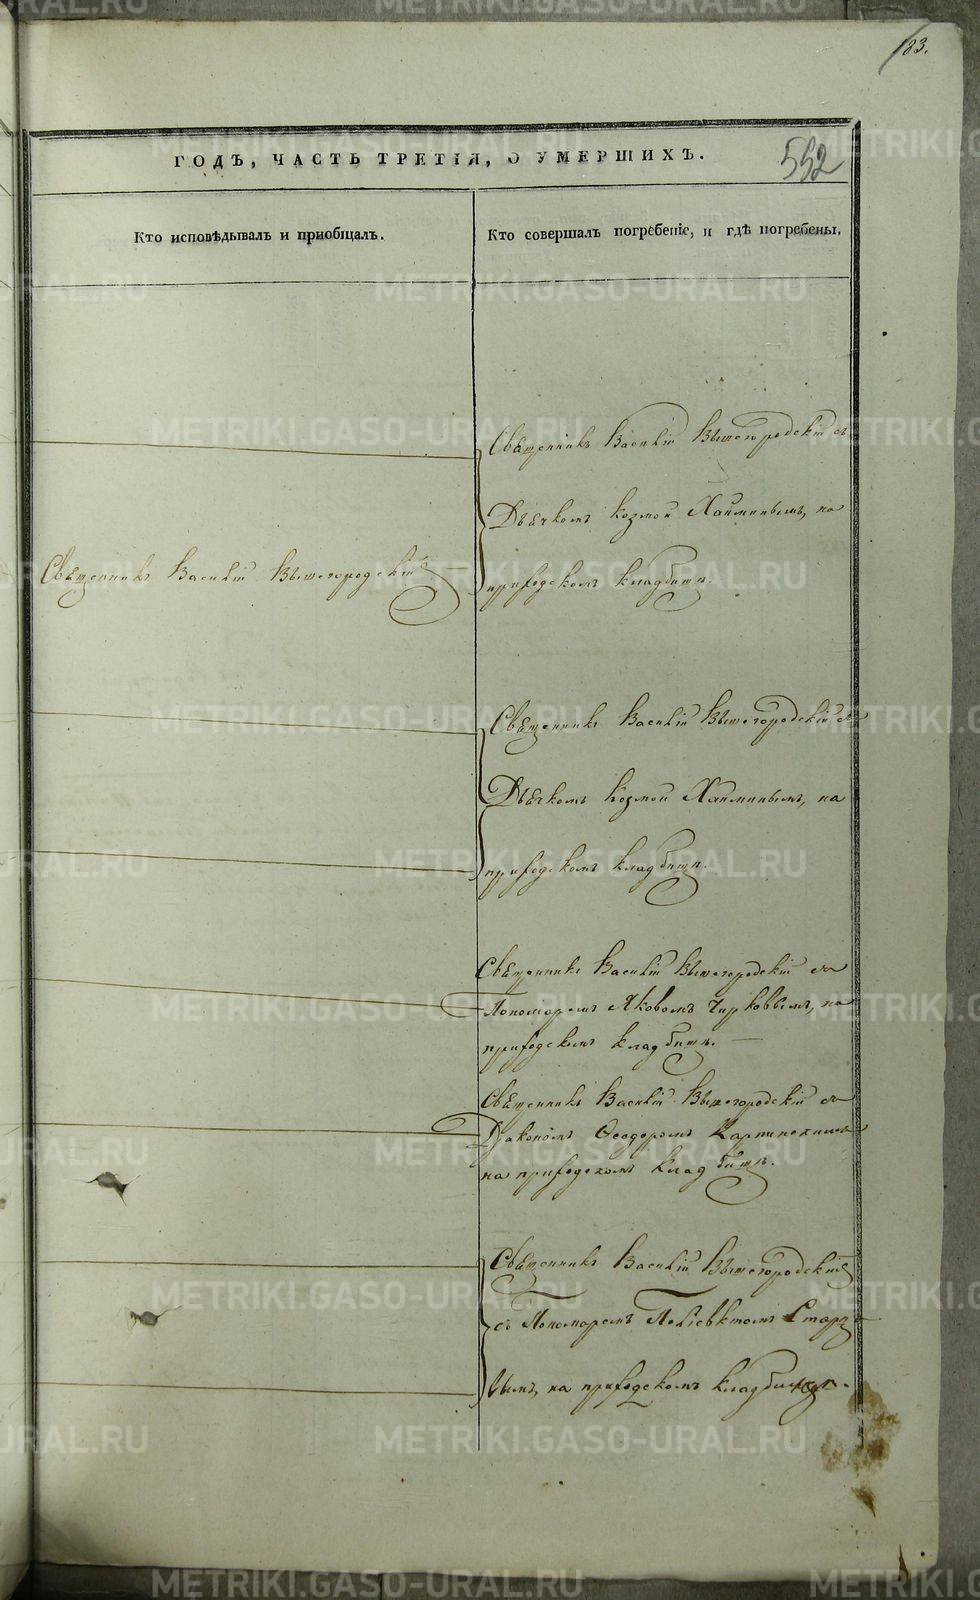 183.
ГОДѢ, ЧАСТЬ ТРЕТІЯ, О УМЕРШИХЪ.
592
Кто исповѣдывалъ и приобщалъ.
Кто совершалъ погребеніе, и гдѣ погребены.
Священникъ Василій Вышегородскій
Священникъ Василій Вышегородскій съ
Дьячкомъ Козмой Хайминымъ, на
приходскомъ кладбищѣ.
Священникъ Василій Вышегородскій съ
Дьячкомъ Козмой Хайминымъ, на
приходскомъ кладбищѣ.
Священникъ Василій Вышегородскій съ
Пономаремъ Яковомъ Чирковымъ, на
приходскомъ кладбищѣ.
Священникъ Василій Вышегородскій съ
Діакономъ Ѳеодоромъ
на приходскомъ кладбищѣ.
Священникъ Василій Вышегородскій
съ Пономаремъ Поліевктомъ Старце
вымъ, на приходскомъ кладбищѣ.
METRIKI.GASO-URAL.RU